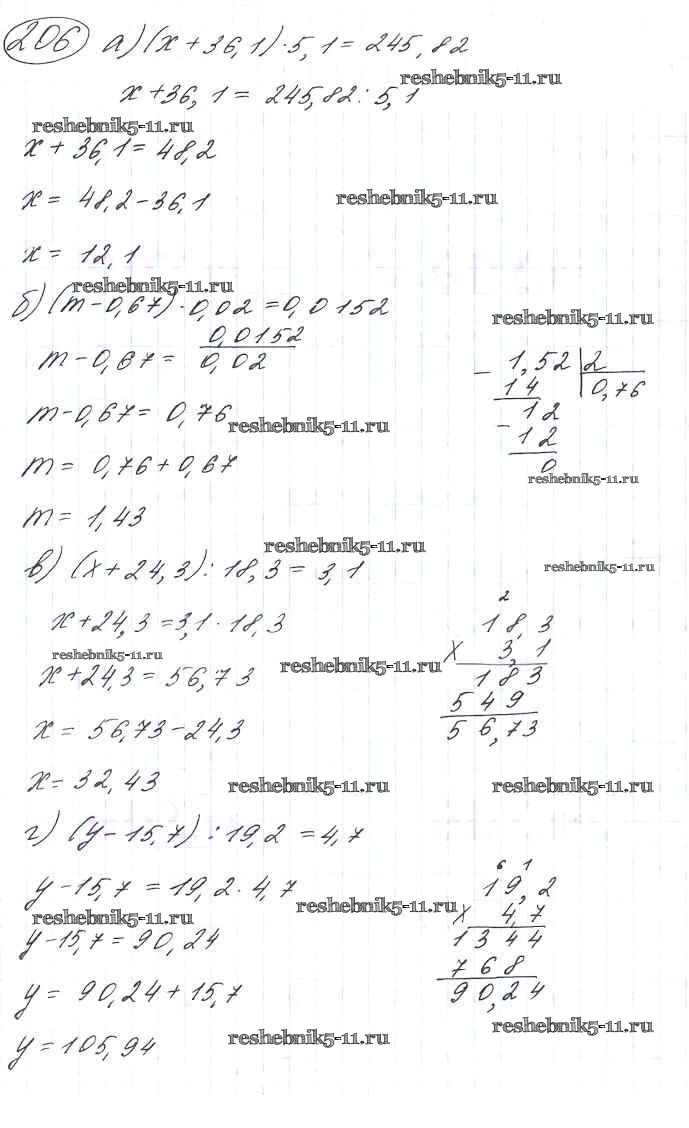 206 а) (x + 36,1) · 5,1 = 245,82
reshebnik5-11.ru
x + 36,1 = 245,82 : 5,1
reshebnik5-11.ru
x + 36,1 = 48,2
x = 48,2 - 36,1
reshebnik5-11.ru
x = 12,1
reshebnik5-11.ru
б) (m - 0,67) · 0,02 = 0,0152
reshebnik5-11.ru
m - 0,67 = 0,0152 / 0,02
m - 0,67 = 0,76
reshebnik5-11.ru
m = 0,76 + 0,67
m = 1,43
- 1,52 | 2
14 0,76
12
- 12
0
reshebnik5-11.ru
reshebnik5-11.ru
в) (x + 24,3) : 18,3 = 3,1
reshebnik5-11.ru
x + 24,3 = 3,1 · 18,3
reshebnik5-11.ru
reshebnik5-11.ru
x + 24,3 = 56,73
x = 56,73 - 24,3
x = 32,43
2
18,3
x 3,1
183
549
56,73
reshebnik5-11.ru
reshebnik5-11.ru
г) (y - 15,7) : 19,2 = 4,7
y - 15,7 = 19,2 · 4,7
reshebnik5-11.ru
reshebnik5-11.ru
y - 15,7 = 90,24
y = 90,24 + 15,7
y = 105,94
6 1
19,2
x 4,7
1344
768
90,24
reshebnik5-11.ru
reshebnik5-11.ru